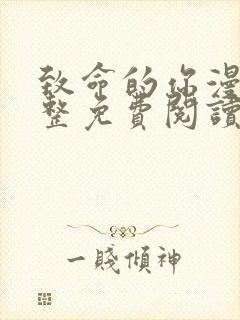 致命的你漫
整免費閱讀
一賤傾神